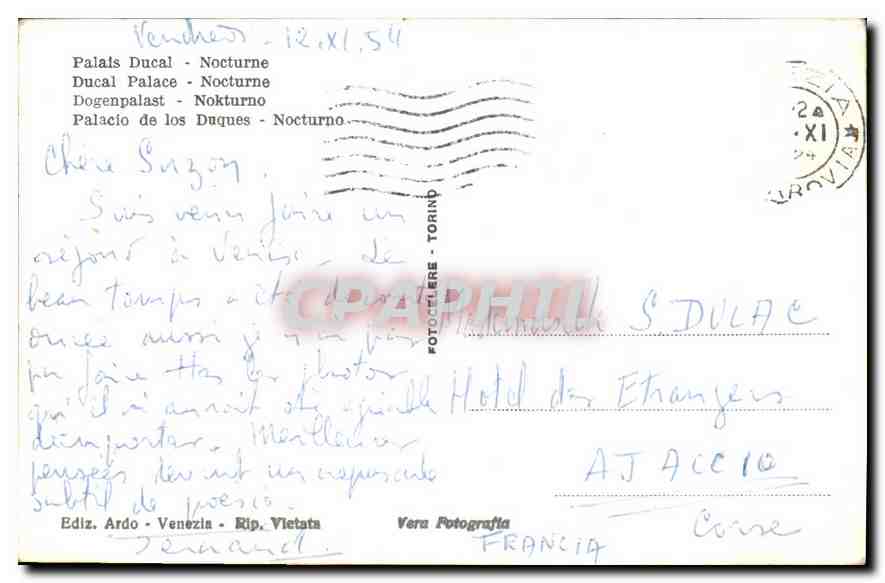 Vendredi - 12.XI.54
Palais Ducal - Nocturne
Ducal Palace - Nocturne
Dogenpalast - Nokturno
Palacio de los Duques - Nocturno
Chère Suzon,
Suis venu faire un
séjour à Venise. Le
beau temps a été
aussi je n'ai pas
pu faire les photos
qu'il m'aurait été agréable
d'emporter. Meilleures
pensées devant un crépuscule
subtil de poésie.
Fernand.
Ediz. Ardo - Venezia - Rip. Vietata
Vera Fotografia
FOTOCELERE - TORINO
CPAPHIL
ZIA
XI
FERROVIA
S. DULAC
Hotel des Etrangers
AJACCIO
Corse
FRANCIA